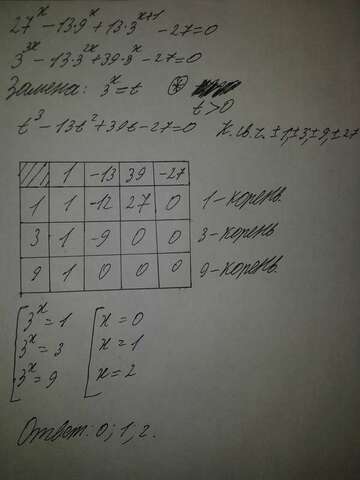 27^x - 13·9^x + 13·3^{x+1} - 27 = 0
3^{3x} - 13·3^{2x} + 39·3^x - 27 = 0
Замена: 3^x = t
t > 0
t^3 - 13t^2 + 39t - 27 = 0 К. св. ч. ±1, ±3, ±9, ±27
1 -13 39 -27
1 1 -12 27 0 1-корень.
3 1 -9 0 0 3-корень
9 1 0 0 0 9-корень.
3^x = 1 x = 0
3^x = 3 x = 1
3^x = 9 x = 2
Ответ: 0; 1; 2.